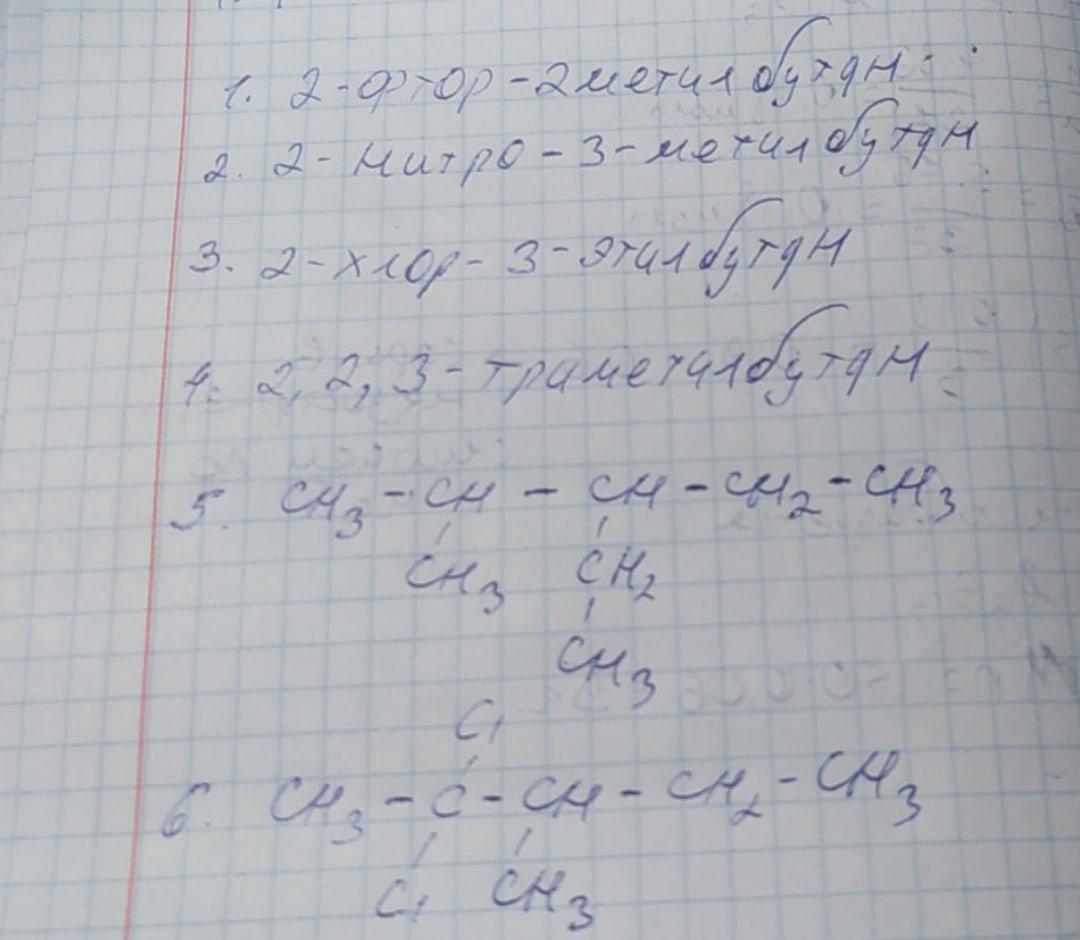 1. 2-фтор-2метилбутан
2. 2-нитро-3-метилбутан
3. 2-хлор-3-этилбутан
4. 2,2,3-траметилбутан
5. CH3-CH-CH-CH2-CH3
CH3 CH2
CH3
Cl
6. CH3-C-CH-CH2-CH3
Cl CH3